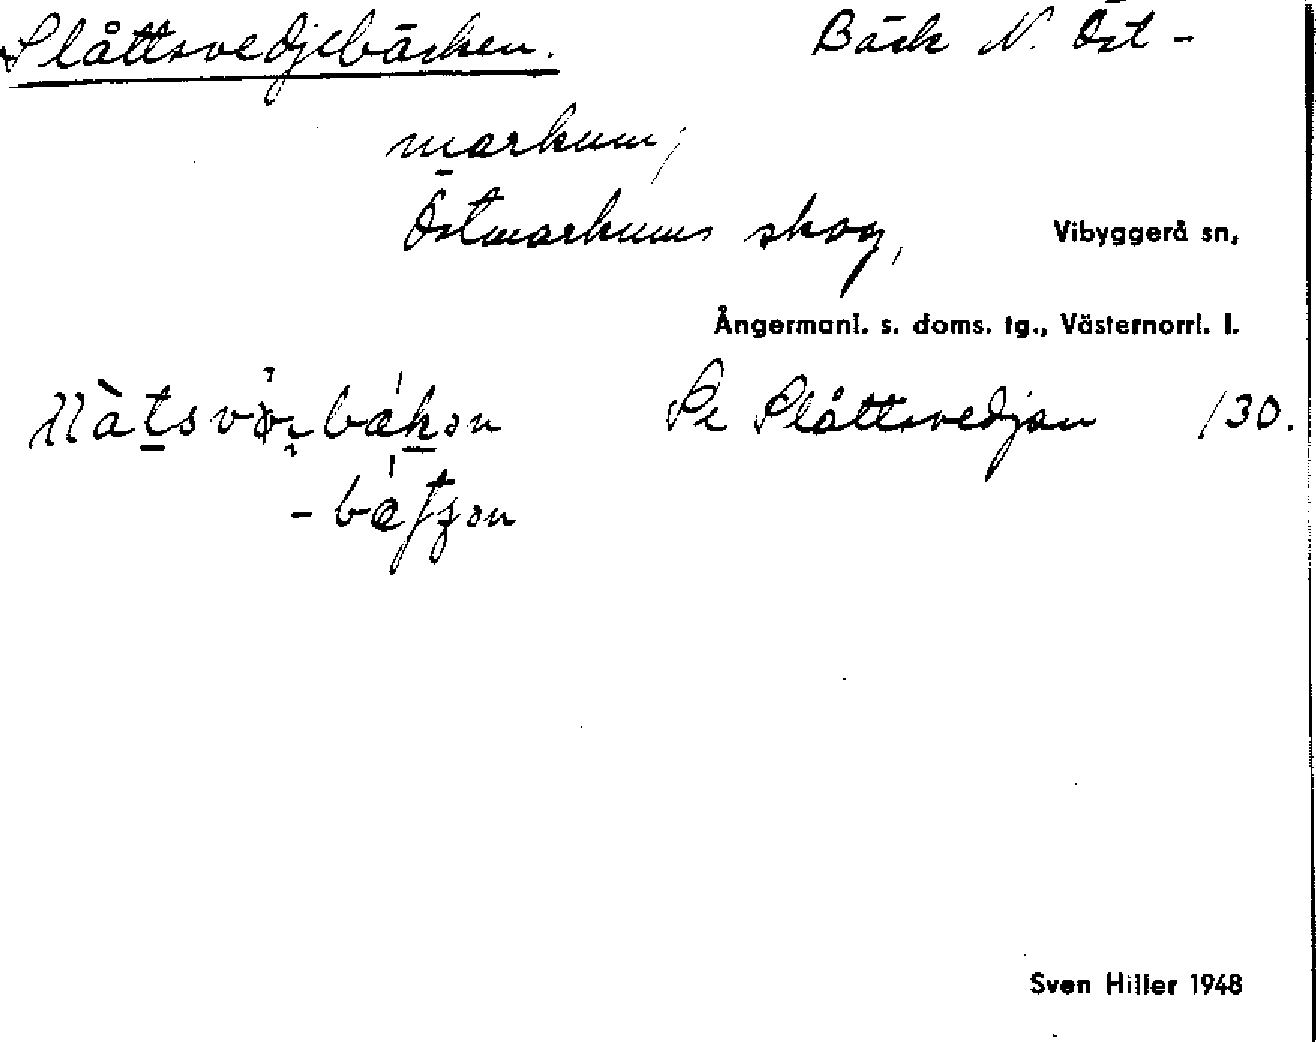 Slåttsvedjebäcken. Bäck N. Öst-
markum,
Östmarkums skog, Vibyggerå sn,
Ångermanl. s. doms. tg., Västernorrl. l.
Se Slåttsvedjan /30.
Sven Hiller 1948